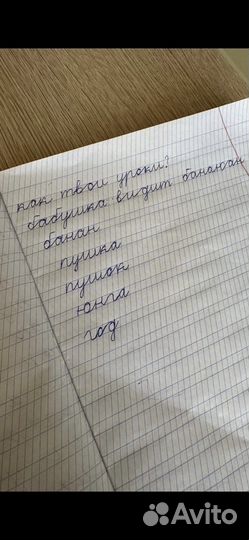 как твои уроки?
бабушка видит банан
банан
пушка
пушок
юнга
год
Avito